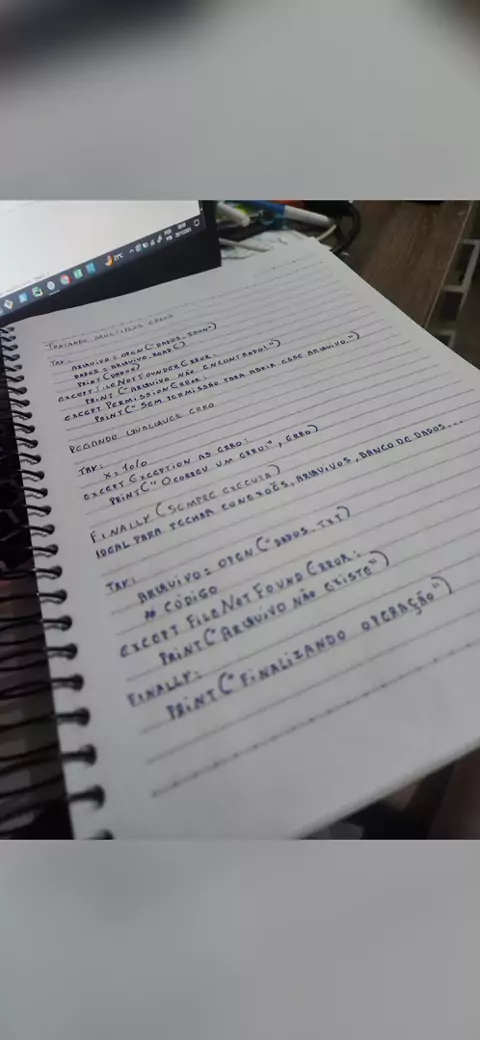 TRATANDO MÚLTIPLOS ERROS
TRY:
ARQUIVO = OPEN("DADOS.JSON")
DADOS = ARQUIVO.READ()
PRINT(DADOS)
EXCEPT FILENOTFOUNDERROR:
PRINT("ARQUIVO NÃO ENCONTRADO!")
EXCEPT PERMISSIONERROR:
PRINT("SEM PERMISSÃO PARA ABRIR ESSE ARQUIVO.")
PEGANDO QUALQUER ERRO
TRY:
X = 10/0
EXCEPT EXCEPTION AS ERRO:
PRINT("OCORREU UM ERRO:", ERRO)
FINALLY (SEMPRE EXECUTA)
IDEAL PARA FECHAR CONEXÕES, ARQUIVOS, BANCO DE DADOS...
TRY:
ARQUIVO = OPEN("DADOS.TXT)
# CÓDIGO
EXCEPT FILENOTFOUNDERROR:
PRINT("ARQUIVO NÃO EXISTE")
FINALLY:
PRINT("FINALIZANDO OPERAÇÃO")